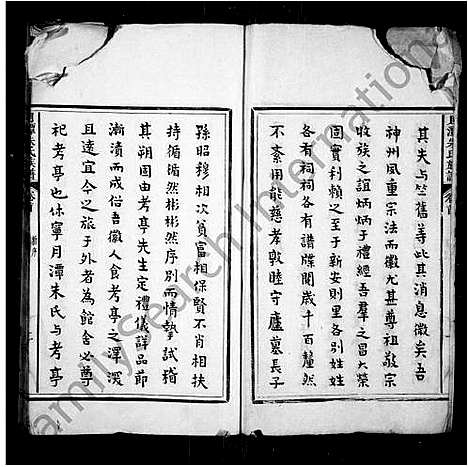 月潭朱氏族譜 卷首
其夫与竺舊等此其消息微矣吾
神州風重宗法而徽尤甚尊祖敬宗
收族之誼炳炳于禮經吾羣之昌大榮
固實利賴之至于新安則里各别姓姓
各有祠祠各有譜牒閱歲千百釐然
不紊用能慈孝敦睦守廬墓長子
孫昭穆相次貧富相保賢不肖相扶
持循循然彬彬然序别而情摯試稽
其朔固由考亭先生定禮儀詳品節
漸漬而成俗吾徽人食考亭之澤深
且遠宜今之旅于外者為館舍必尊
祀考亭也休寧月潭朱氏与考亭
FamilySearch International